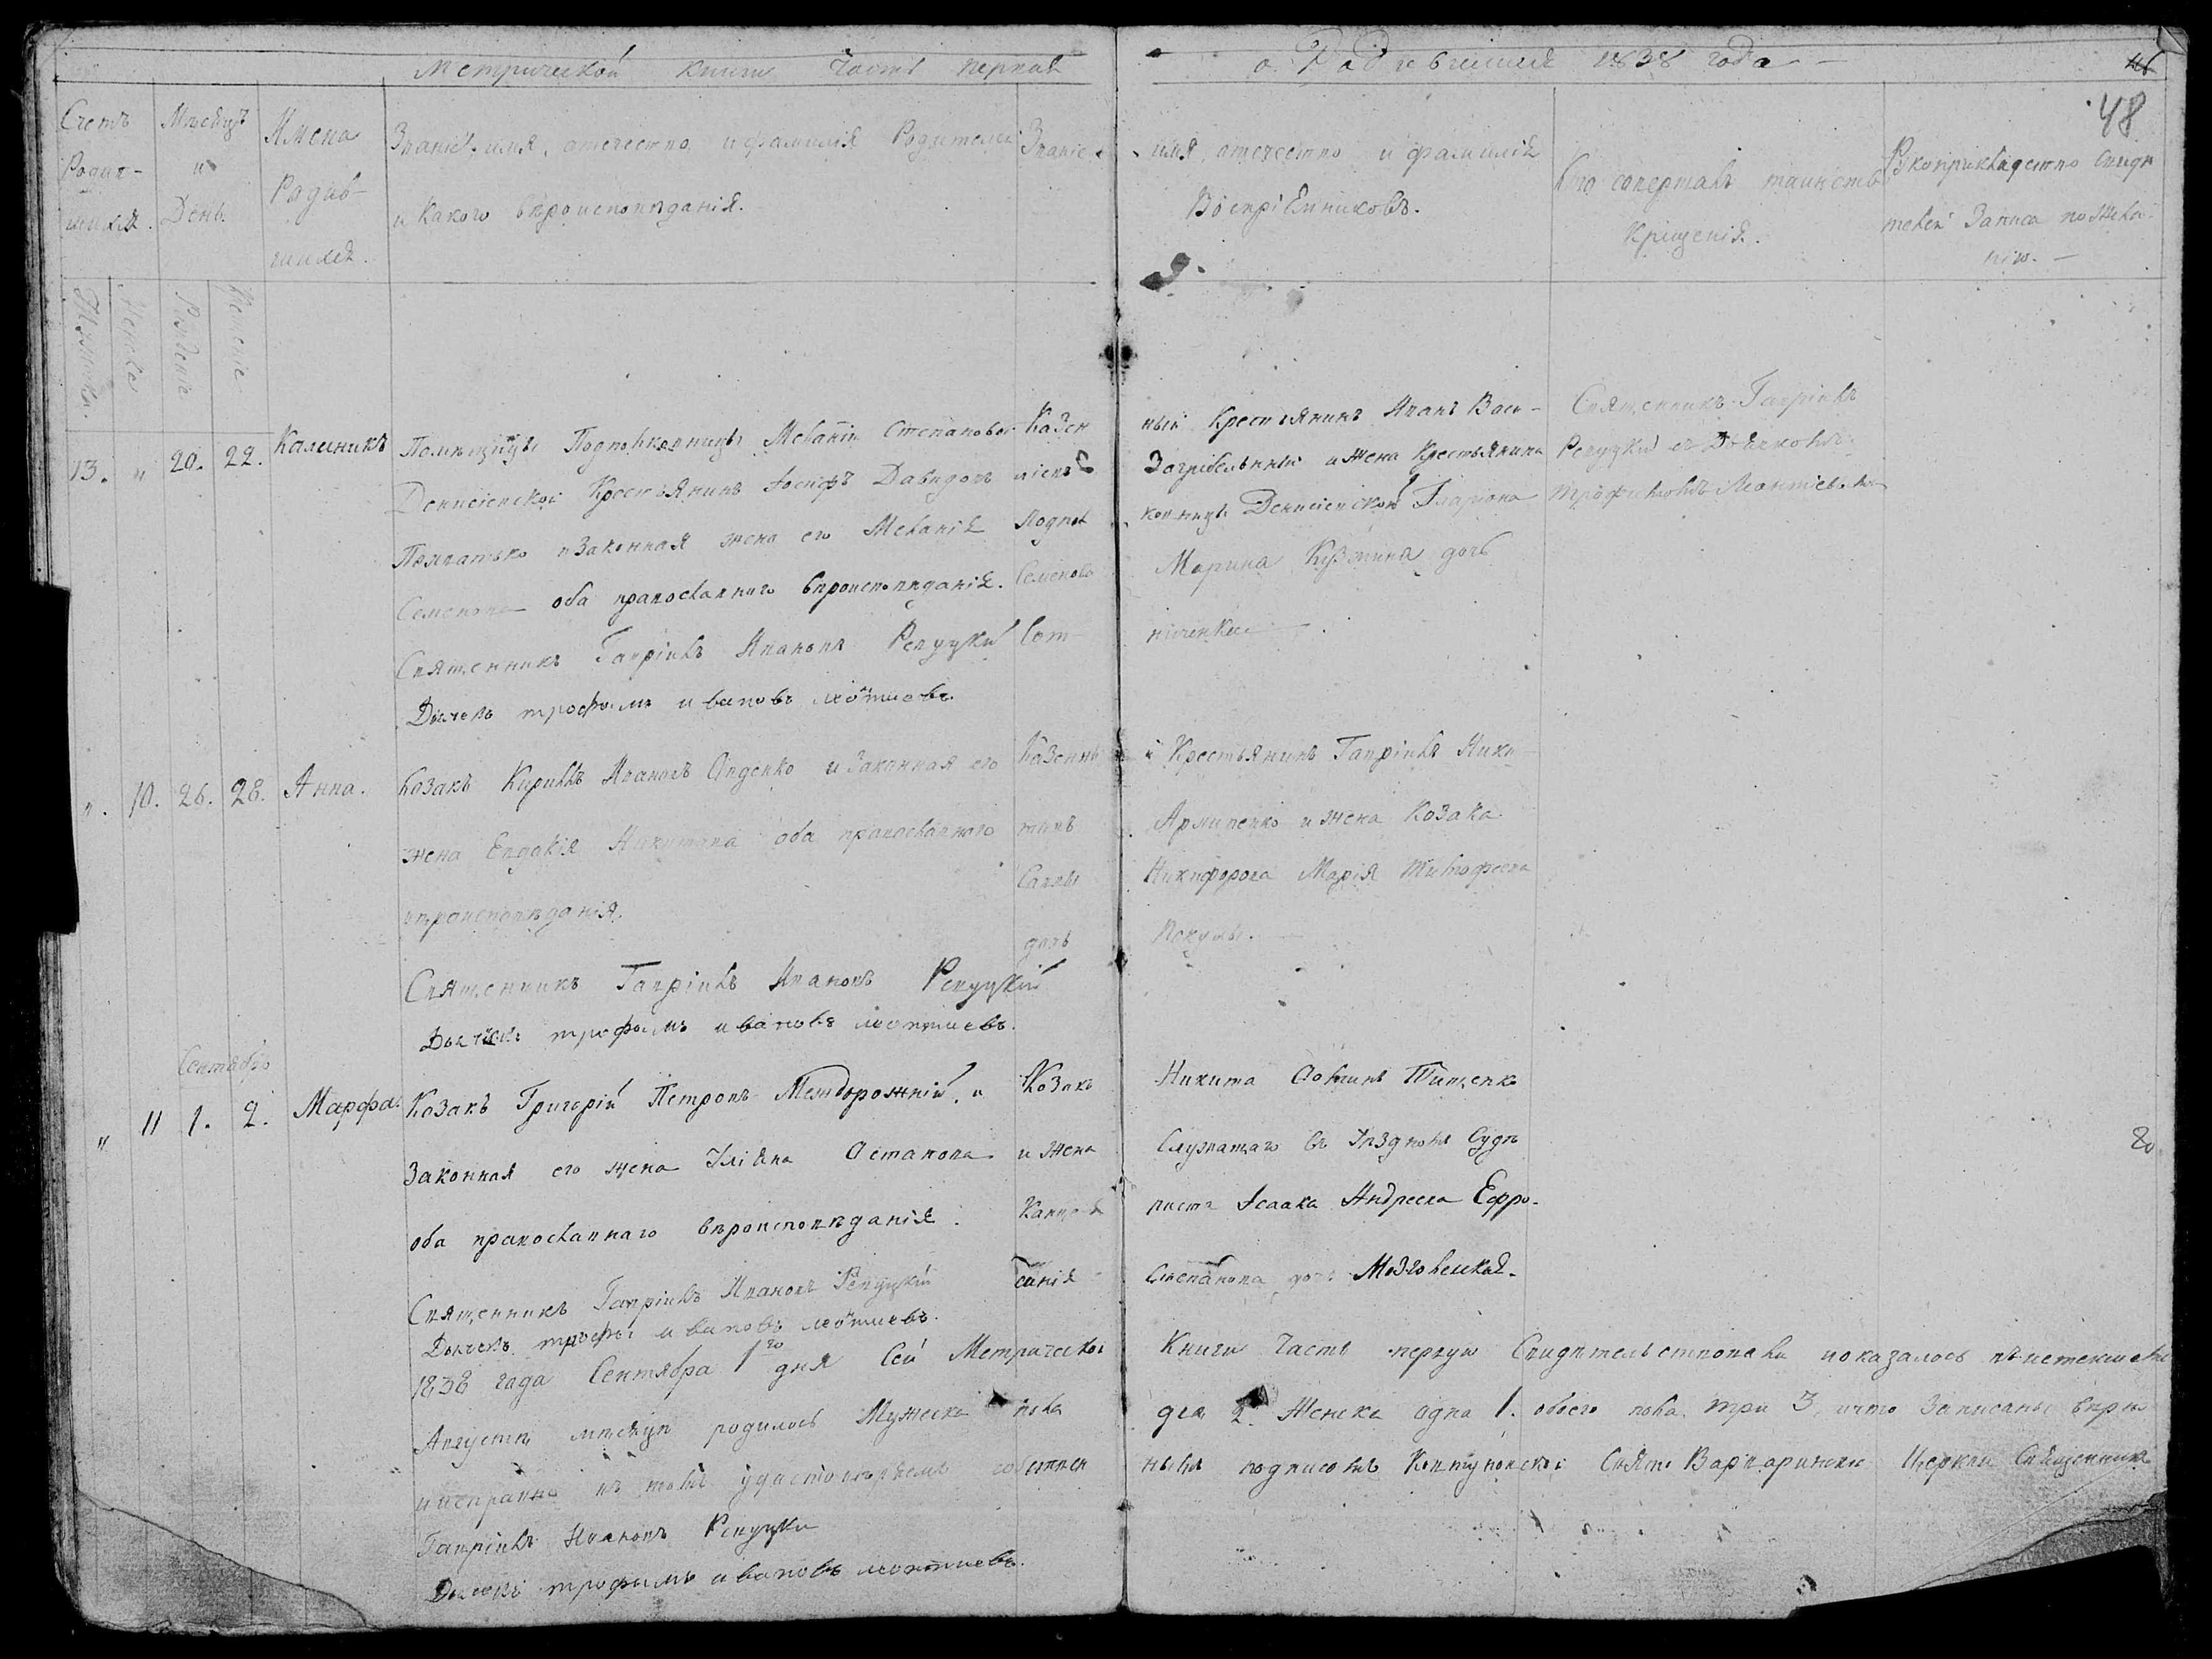 Метрической книги часть первая о Родившихся 1838 года
48
Счетъ Родив-шихся.
Мѣсяцъ и День.
Имена Родив-шихся.
Званіе, имя, отечество, и фамилія Родителей
и какого вѣроисповѣданія.
Званіе, имя, отечество и фамилія
Воспріемниковъ.
Кто совершалъ таинство
Крещенія.
Рукоприкладство свидѣ
телей Записа по жела
нію.
Мужеска.
Женска
Рожденіе
Крещеніе
13. " 20. 22. Калиникъ
Помѣщицы Подполковницы Меланіи Степановой
Денисіевской Крестьянинъ Іосифъ Давидовъ
и Законная жена его Меланія
Семенова оба православнаго вѣроисповѣданія.
Священникъ Гавріилъ Ивановъ Репуцкій
Дьячекъ трофимъ ивановъ леонтиевъ
Казенный Крестьянинъ Иванъ Васи-
и жена Крестьянина
Подполковницы Денисіевской Иларіона
Семенова Марина Кузмина дочь
Сотниченка
Священникъ Гавріилъ
Репуцкій съ Дьячкомъ
Трофимомъ Леонтіевымъ
". 10. 26. 28. Анна.
Козакъ Кирилъ Ивановъ Авденко и Законная его
жена Евдокія Никитина оба православнаго
вѣроисповѣданія.
Священникъ Гавріилъ Ивановъ Репуцкій
Дьячекъ трофимъ ивановъ леонтиевъ.
Казенный Крестьянинъ Гавріилъ Ники-
тинъ Ярмиленко и жена Козака
Саввы Никифорова Марія Тимофеева
дочь
Сентябрь
" 11 1. 2. Марфа.
Козакъ Григорій Петровъ Междорожній, и
Законная его жена Уліяна Остапова
оба православнаго вѣроисповѣданія.
Священникъ Гавріилъ Ивановъ Репуцкій
Дьячекъ трофимъ ивановъ леонтиевъ.
Козакъ Никита Тищенко
и жена Служащаго въ Уѣздномъ Судѣ
Исаака Андреева Ефро-
синія Степанова дочь
1838 года Сентября 1го дня Сей Метрической Книги часть первую Свидѣтельствовали и оказалось въ истекшемъ
Августѣ мѣсяцѣ родилось Мужеска пола два 2. Женска одна 1. обоего пола три 3, и что Записаны вѣрно
и исправно въ томъ удостовѣряемъ собственнымъ подписомъ Свято Варваринской Церкви Священникъ
Гавріилъ Ивановъ Репуцкій
Дьячекъ трофимъ ивановъ леонтиевъ.